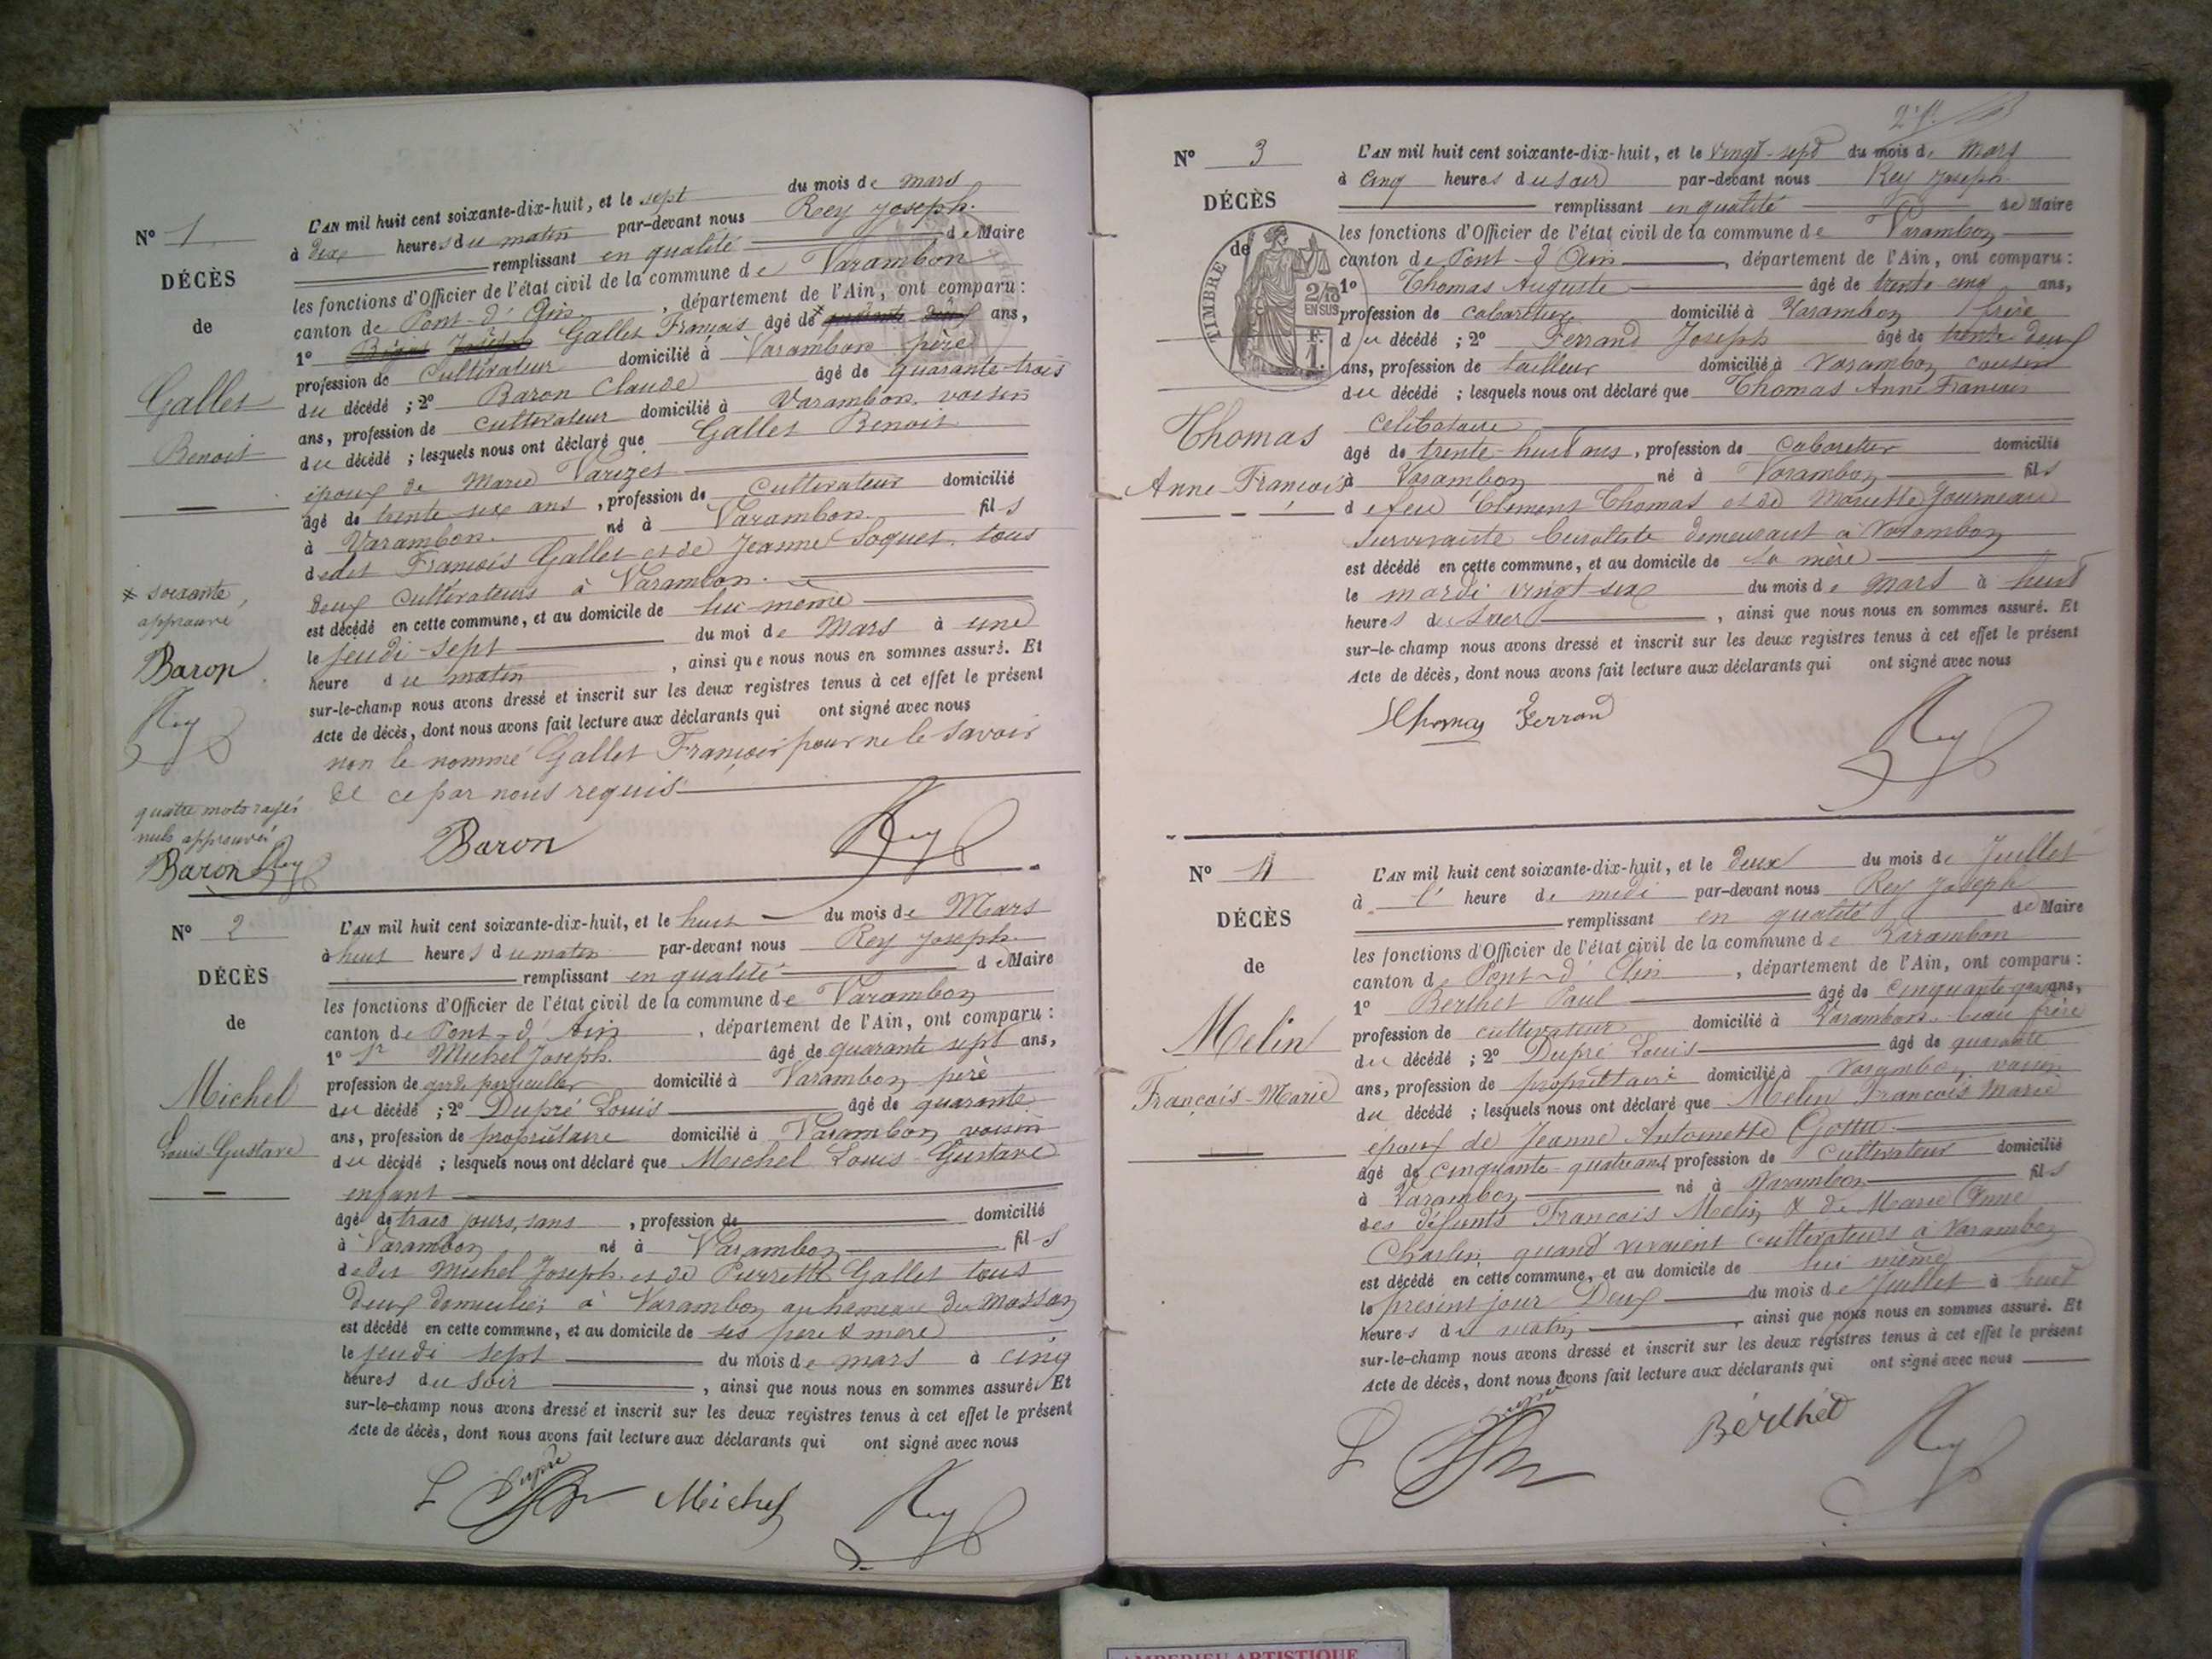 Nº 1
DÉCÈS
de
Gallet
Benoit
* soixante
approuvé
Baron
Rey
quatre mots rayés
nuls approuvés
Baron Rey
L'AN mil huit cent soixante-dix-huit, et le sept du mois de mars
à dix heures du matin par-devant nous Rey Joseph
remplissant en qualité de Maire
les fonctions d'Officier de l'état civil de la commune de Varambon
canton de Pont-d'Ain, département de l'Ain, ont comparu :
1º Joseph Gallet François âgé de* ans,
profession de Cultivateur domicilié à Varambon père
du décédé ; 2º Baron Claude âgé de quarante-trois
ans, profession de cultivateur domicilié à Varambon voisin
du décédé ; lesquels nous ont déclaré que Gallet Benoit
époux de Marie Varizet
âgé de trente six ans, profession de Cultivateur domicilié
à Varambon né à Varambon fils
de dit François Gallet et de Jeanne Soquet, tous
deux cultivateurs à Varambon.
est décédé en cette commune, et au domicile de lui-même
le jeudi sept du moi de Mars à une
heure du matin, ainsi que nous nous en sommes assuré. Et
sur-le-champ nous avons dressé et inscrit sur les deux registres tenus à cet effet le présent
Acte de décès, dont nous avons fait lecture aux déclarants qui ont signé avec nous
non le nommé Gallet François pour ne le savoir
de ce par nous requis
Baron Rey
Nº 2
DÉCÈS
de
Michel
Louis-Gustave
L'AN mil huit cent soixante-dix-huit, et le huit du mois de Mars
à huit heures du matin par-devant nous Rey Joseph
remplissant en qualité de Maire
les fonctions d'Officier de l'état civil de la commune de Varambon
canton de Pont-d'Ain, département de l'Ain, ont comparu :
1º Michel Joseph âgé de quarante sept ans,
profession de garde particulier domicilié à Varambon père
du décédé ; 2º Dupré Louis âgé de quarante
ans, profession de propriétaire domicilié à Varambon voisin
du décédé ; lesquels nous ont déclaré que Michel Louis-Gustave
enfant
âgé de trois jours, sans, profession de domicilié
à Varambon né à Varambon fils
de dit Michel Joseph et de Pierrette Gallet tous
deux domiciliés à Varambon au hameau du Mossan
est décédé en cette commune, et au domicile de ses père & mère
le jeudi sept du mois de mars à cinq
heures du soir, ainsi que nous nous en sommes assuré. Et
sur-le-champ nous avons dressé et inscrit sur les deux registres tenus à cet effet le présent
Acte de décès, dont nous avons fait lecture aux déclarants qui ont signé avec nous
L Dupré Michel Rey
Nº 3
DÉCÈS
de
TIMBRE
2/10
EN SUS
F.
1.
Thomas
Anne-François
L'AN mil huit cent soixante-dix-huit, et le vingt-sept du mois de Mars
à cinq heures du soir par-devant nous Rey Joseph
remplissant en qualité de Maire
les fonctions d'Officier de l'état civil de la commune de Varambon
canton de Pont-d'Ain, département de l'Ain, ont comparu :
1º Thomas Auguste âgé de trente-cinq ans,
profession de cabaretier domicilié à Varambon frère
du décédé ; 2º Ferrand Joseph âgé de trente deux
ans, profession de tailleur domicilié à Varambon cousin
du décédé ; lesquels nous ont déclaré que Thomas Anne François
Célibataire
âgé de trente-huit ans, profession de Cabaretier domicilié
à Varambon né à Varambon fils
de feu Clément Thomas et de Mariette Journeau
survivante demeurant à Varambon
est décédé en cette commune, et au domicile de sa mère
le mardi vingt-six du mois de Mars à huit
heures du soir, ainsi que nous nous en sommes assuré. Et
sur-le-champ nous avons dressé et inscrit sur les deux registres tenus à cet effet le présent
Acte de décès, dont nous avons fait lecture aux déclarants qui ont signé avec nous
Thomas Ferrand Rey
Nº 4
DÉCÈS
de
Melin
François-Marie
L'AN mil huit cent soixante-dix-huit, et le deux du mois de Juillet
à l' heure de midi par-devant nous Rey Joseph
remplissant en qualité de Maire
les fonctions d'Officier de l'état civil de la commune de Varambon
canton de Pont-d'Ain, département de l'Ain, ont comparu :
1º Berthet Paul âgé de cinquante ans,
profession de cultivateur domicilié à Varambon beau frère
du décédé ; 2º Dupré Louis âgé de quarante
ans, profession de propriétaire domicilié à Varambon voisin
du décédé ; lesquels nous ont déclaré que Melin François Marie
époux de Jeanne Antoinette Gottu
âgé de cinquante-quatre ans profession de Cultivateur domicilié
à Varambon né à Varambon fils
des défunts François Melin & de Marie Anne
Charlin quand vivaient cultivateurs à Varambon
est décédé en cette commune, et au domicile de lui même
le présent jour Deux du mois de Juillet à huit
heures du matin, ainsi que nous nous en sommes assuré. Et
sur-le-champ nous avons dressé et inscrit sur les deux registres tenus à cet effet le présent
Acte de décès, dont nous avons fait lecture aux déclarants qui ont signé avec nous
L Dupré Berthet Rey
AMBERIEU ARTISTIQUE